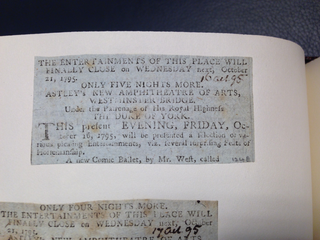 THE ENTERTAINMENTS OF THIS PLACE WILL
FINALLY CLOSE on WEDNESDAY next, October
21, 1795. 16 Oct 95
ONLY FIVE NIGHTS MORE.
ASTLEY's NEW AMPHITHEATRE OF ARTS,
WESTMINSTER BRIDGE.
Under the Patronage of His Royal Highness
THE DUKE OF YORK.
THIS present EVENING, FRIDAY, Oc-
tober 16, 1795, will be presented a Selection of va-
rious pleasing Entertainments, viz. several surprising Feats of
Horsemanship.
A new Comic Ballet, by Mr. West, called
ONLY FOUR NIGHTS MORE.
THE ENTERTAINMENTS OF THIS PLACE WILL
FINALLY CLOSE on WEDNESDAY next, October
21, 1795. 17 Oct 95
ASTLEY's NEW AMPHITHEATRE OF ARTS